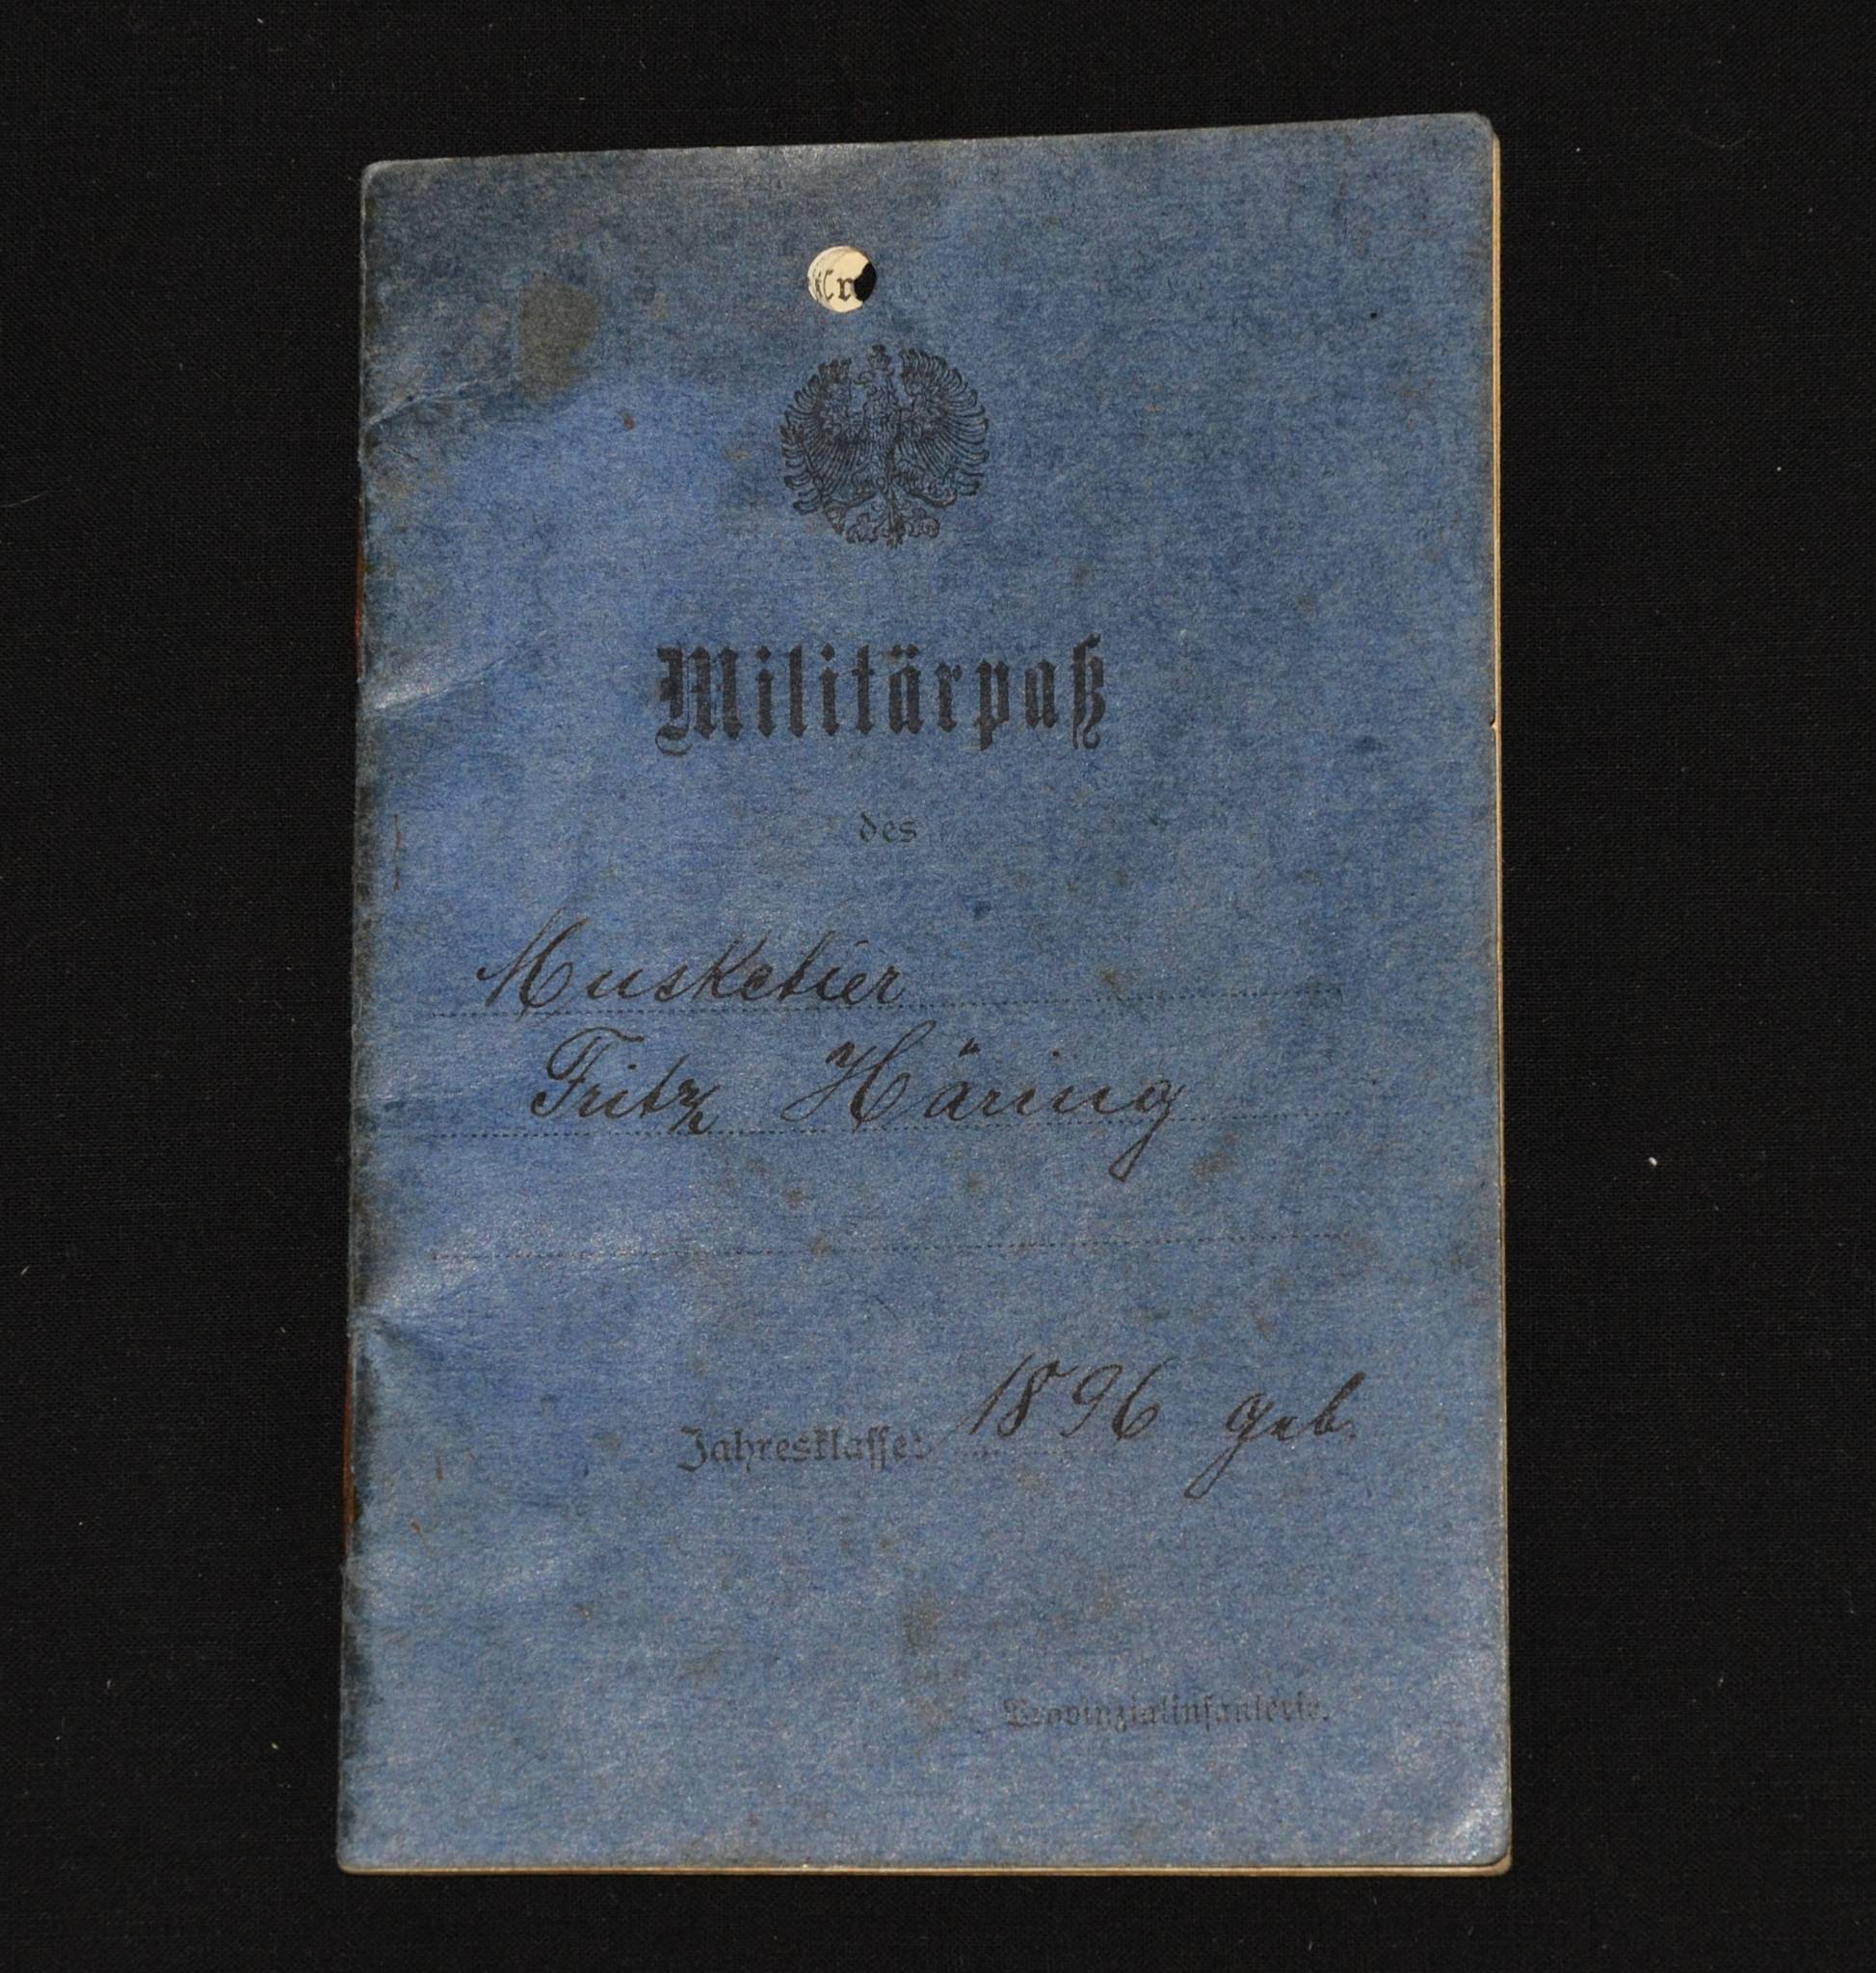 Militärpaß
des
Musketier
Fritz Häring
Jahresklasse: 1896 geb.
Provinzialinfanterie.